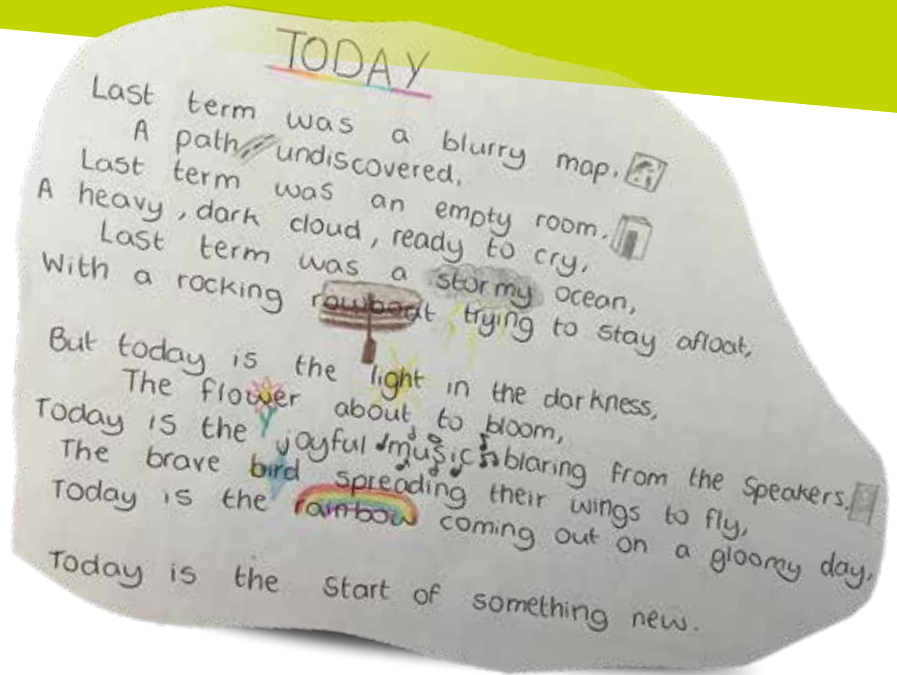 TODAY
Last term was a blurry map.
A path undiscovered.
Last term was an empty room.
A heavy, dark cloud, ready to cry,
Last term was a stormy ocean,
With a rocking rowboat trying to stay afloat,
But today is the light in the darkness,
The flower about to bloom,
Today is the joyful music blaring from the speakers.
The brave bird spreading their wings to fly,
Today is the rainbow coming out on a gloomy day,
Today is the start of something new.